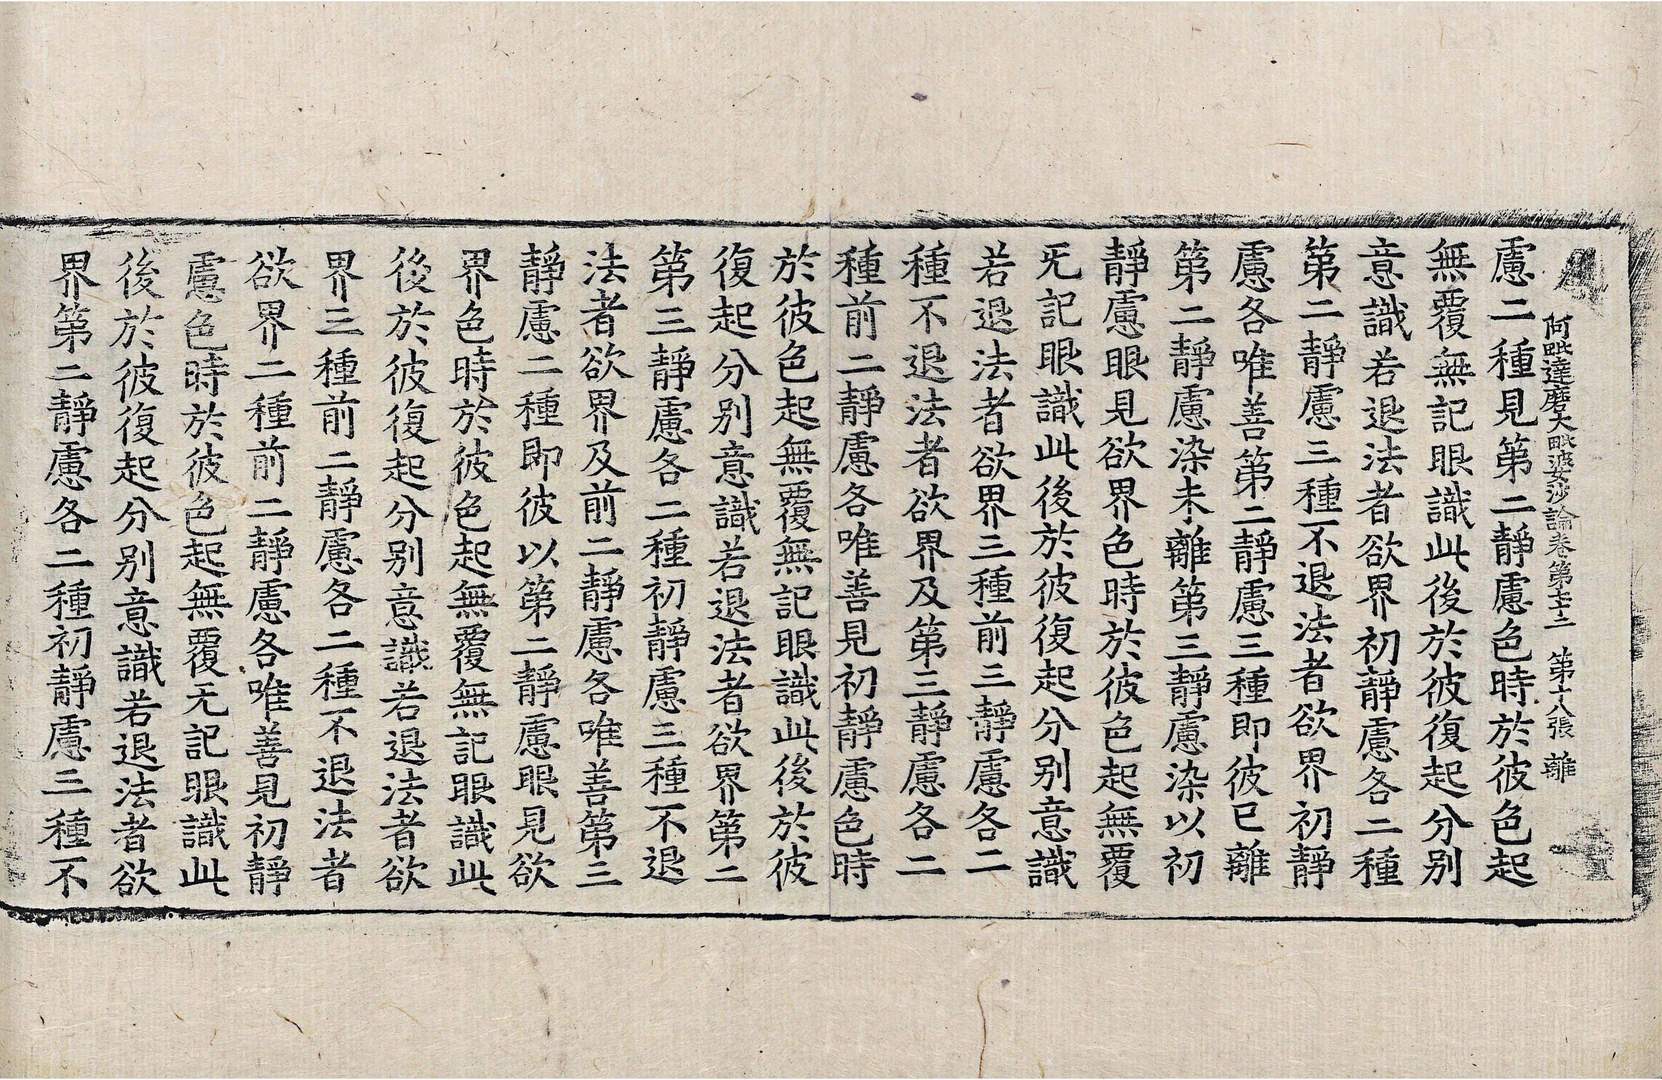 阿毗達磨大毗婆沙論卷第七十三 第十八張 離
慮二種見第二靜慮色時於彼色起
無覆無記眼識此後於彼復起分別
意識若退法者欲界初靜慮各二種
第二靜慮三種不退法者欲界初靜
慮各唯善第二靜慮三種即彼已離
第二靜慮染未離第三靜慮染以初
靜慮眼見欲界色時於彼色起無覆
无記眼識此後於彼復起分別意識
若退法者欲界三種前三靜慮各二
種不退法者欲界及第三靜慮各二
種前二靜慮各唯善見初靜慮色時
於彼色起無覆無記眼識此後於彼
復起分別意識若退法者欲界第二
第三靜慮各二種初靜慮三種不退
法者欲界及前二靜慮各唯善第三
靜慮二種即彼以第二靜慮眼見欲
界色時於彼色起無覆無記眼識此
後於彼復起分別意識若退法者欲
界三種前二靜慮各二種不退法者
欲界二種前二靜慮各唯善見初靜
慮色時於彼色起無覆无記眼識此
後於彼復起分別意識若退法者欲
界第二靜慮各二種初靜慮三種不